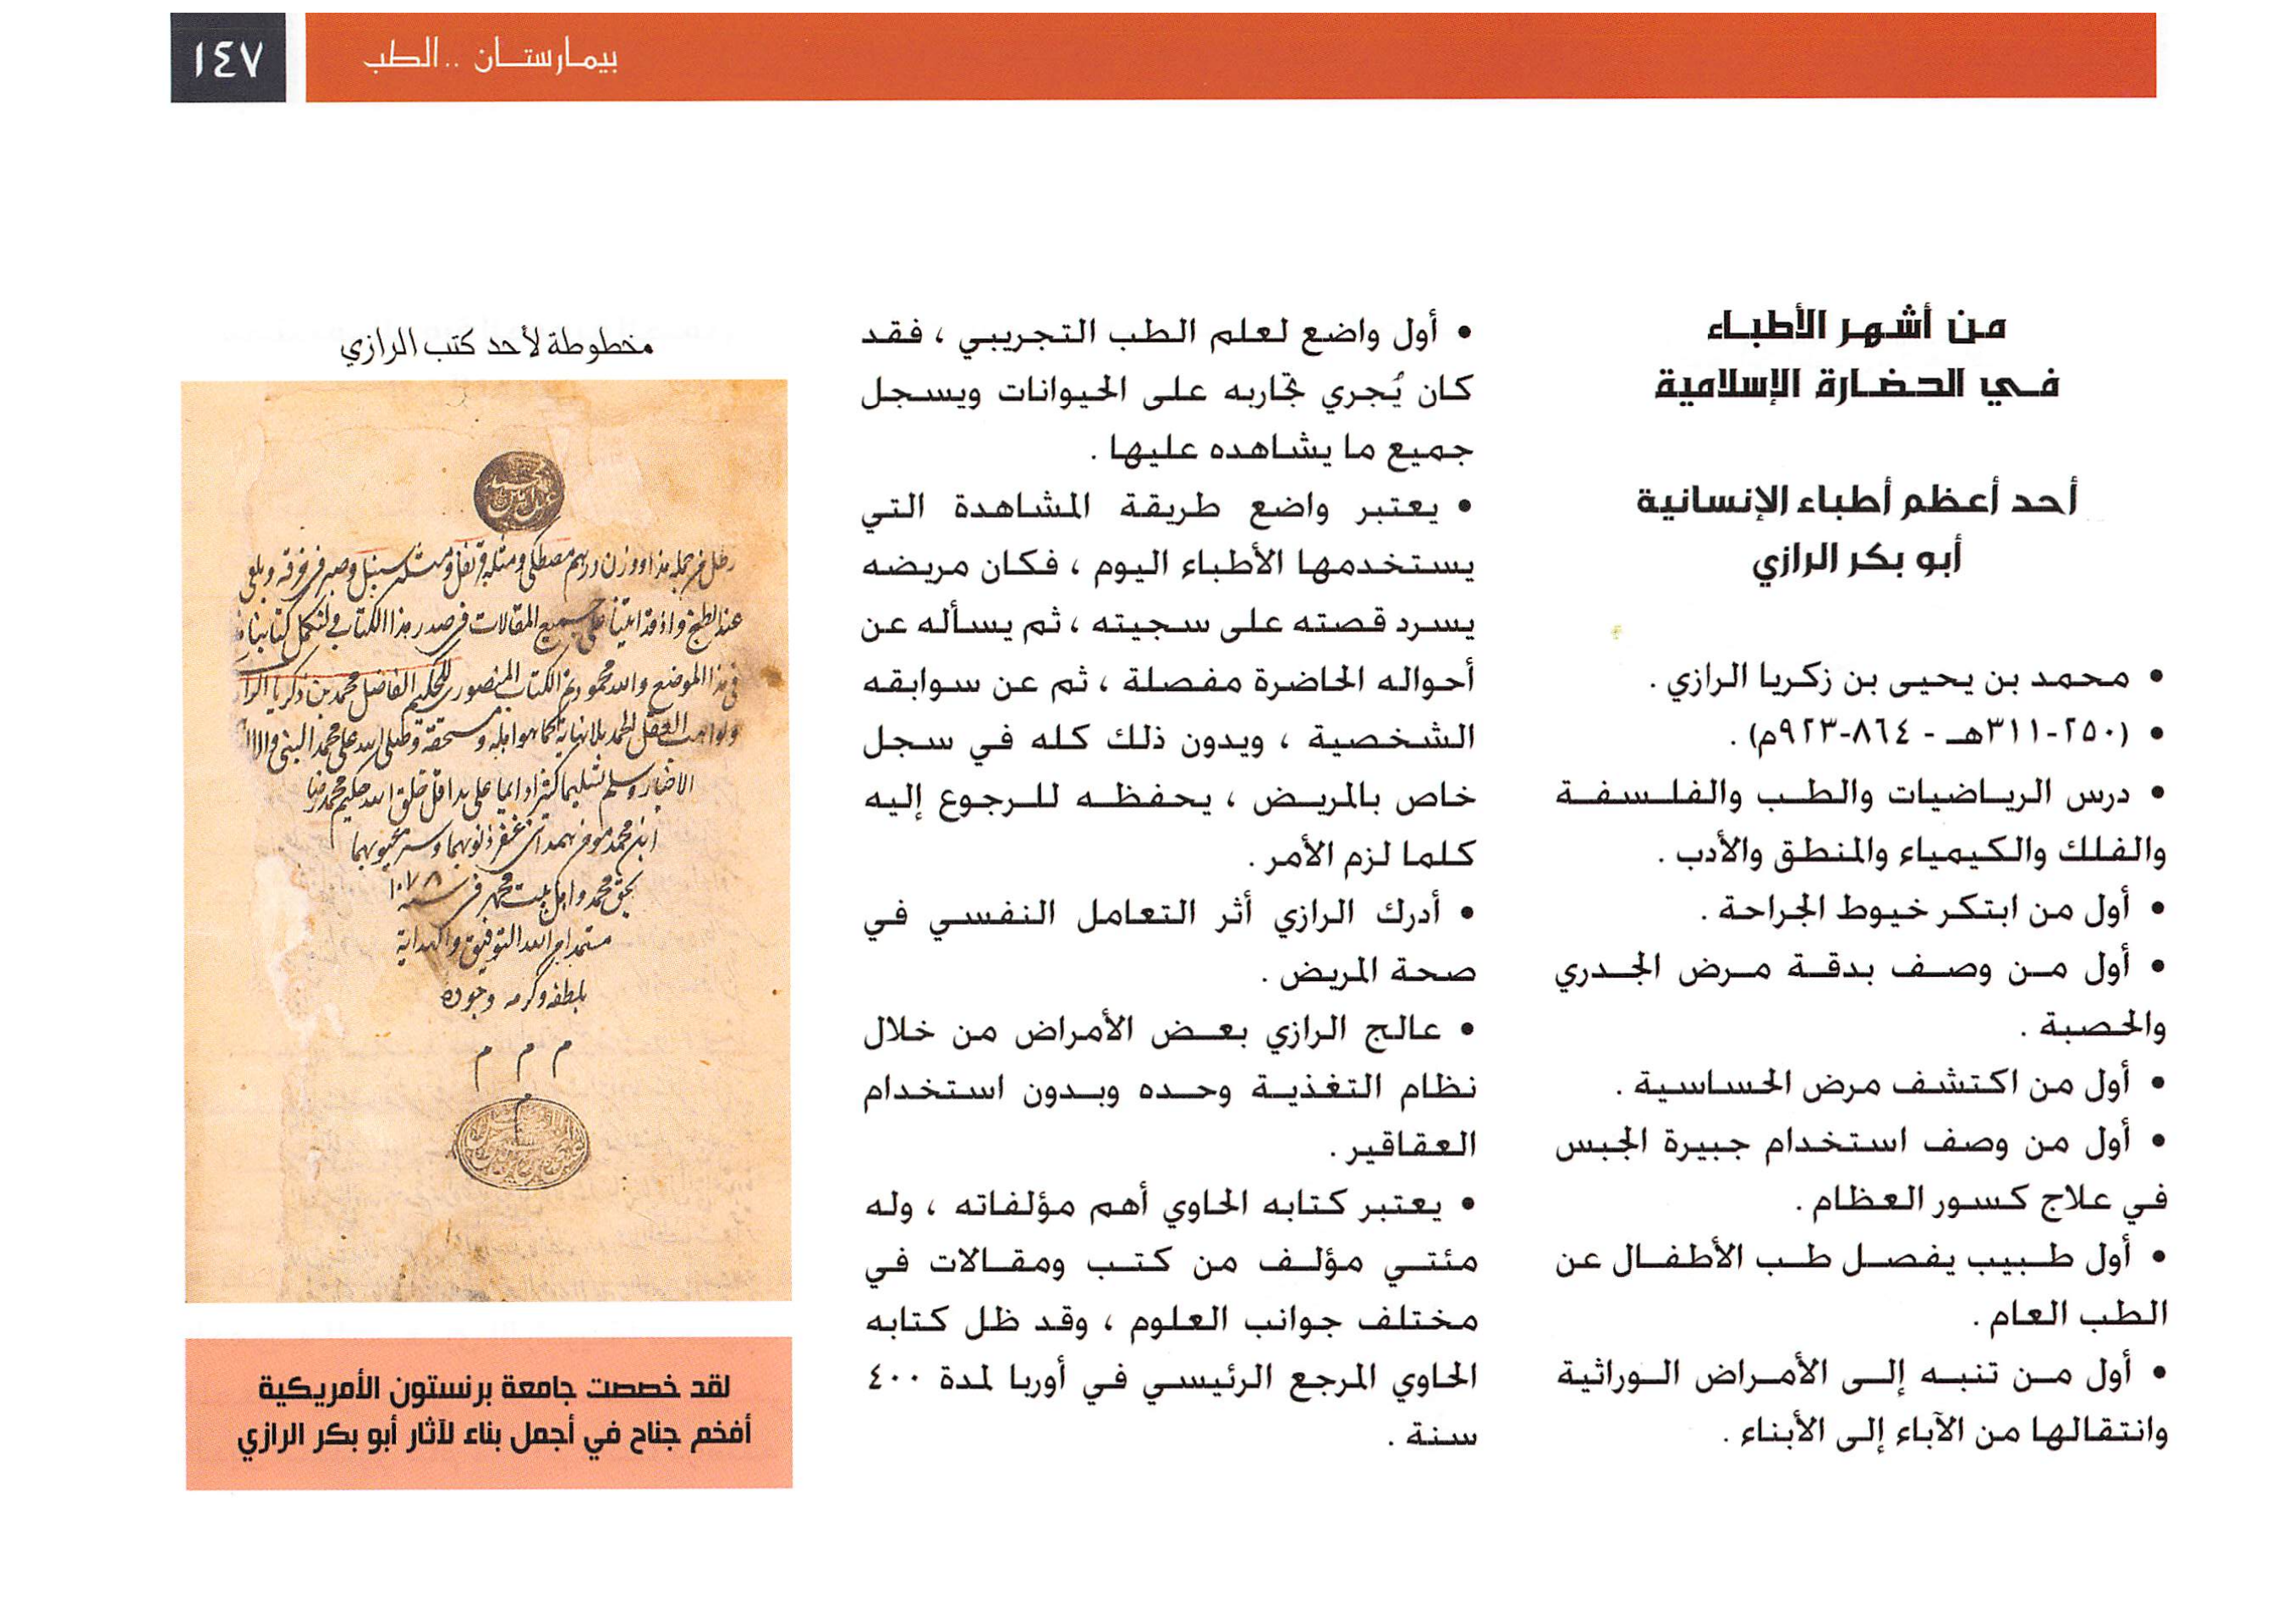 بيمارستان .. الطب
١٤٧
من أشهر الأطباء
في الحضارة الإسلامية
أحد أعظم أطباء الإنسانية
أبو بكر الرازي
• محمد بن يحيى بن زكريا الرازي .
• (٢٥٠-٣١١هـ - ٨٦٤-٩٢٣م) .
• درس الرياضيات والطب والفلسفة
والفلك والكيمياء والمنطق والأدب .
• أول من ابتكر خيوط الجراحة .
• أول من وصف بدقة مرض الجدري
والحصبة .
• أول من اكتشف مرض الحساسية .
• أول من وصف استخدام جبيرة الجبس
في علاج كسور العظام .
• أول طبيب يفصل طب الأطفال عن
الطب العام .
• أول من تنبه إلى الأمراض الوراثية
وانتقالها من الآباء إلى الأبناء .
• أول واضع لعلم الطب التجريبي ، فقد
كان يُجري تجاربه على الحيوانات ويسجل
جميع ما يشاهده عليها .
• يعتبر واضع طريقة المشاهدة التي
يستخدمها الأطباء اليوم ، فكان مريضه
يسرد قصته على سجيته ، ثم يسأله عن
أحواله الحاضرة مفصلة ، ثم عن سوابقه
الشخصية ، ويدون ذلك كله في سجل
خاص بالمريض ، يحفظه للرجوع إليه
كلما لزم الأمر .
• أدرك الرازي أثر التعامل النفسي في
صحة المريض .
• عالج الرازي بعض الأمراض من خلال
نظام التغذية وحده وبدون استخدام
العقاقير .
• يعتبر كتابه الحاوي أهم مؤلفاته ، وله
مئتي مؤلف من كتب ومقالات في
مختلف جوانب العلوم ، وقد ظل كتابه
الحاوي المرجع الرئيسي في أوربا لمدة ٤٠٠
سنة .
مخطوطة لأحد كتب الرازي
المقالات في صدر هذا الكتاب
الموضع والله محمود تم الكتاب المنصوري للحكيم الفاضل محمد بن زكريا
بلطفه وكرمه وجوده
م م م
لقد خصصت جامعة برنستون الأمريكية
أفخم جناح في أجمل بناء لآثار أبو بكر الرازي